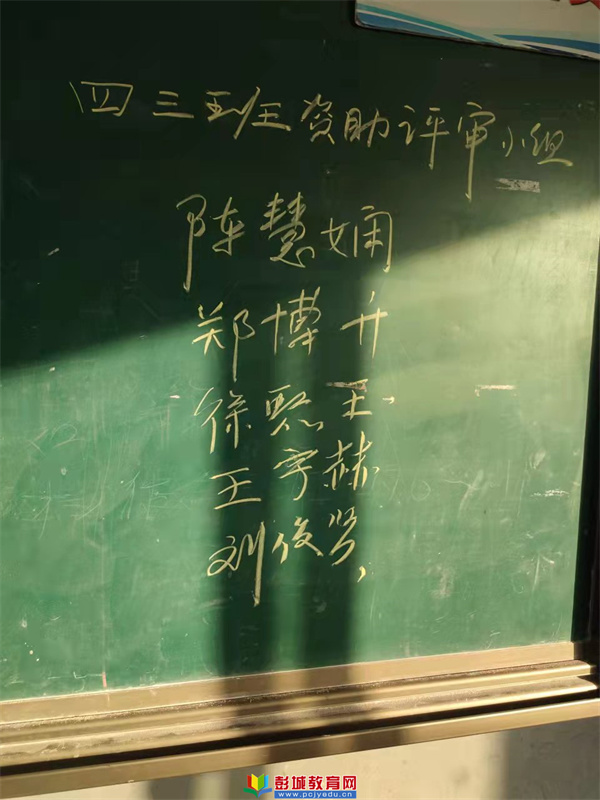 四三班资助评审小组
陈慧娴
郑博升
徐熙王、
王宇赫
刘俊贤、
彭城教育网
www.pcjyedu.cn